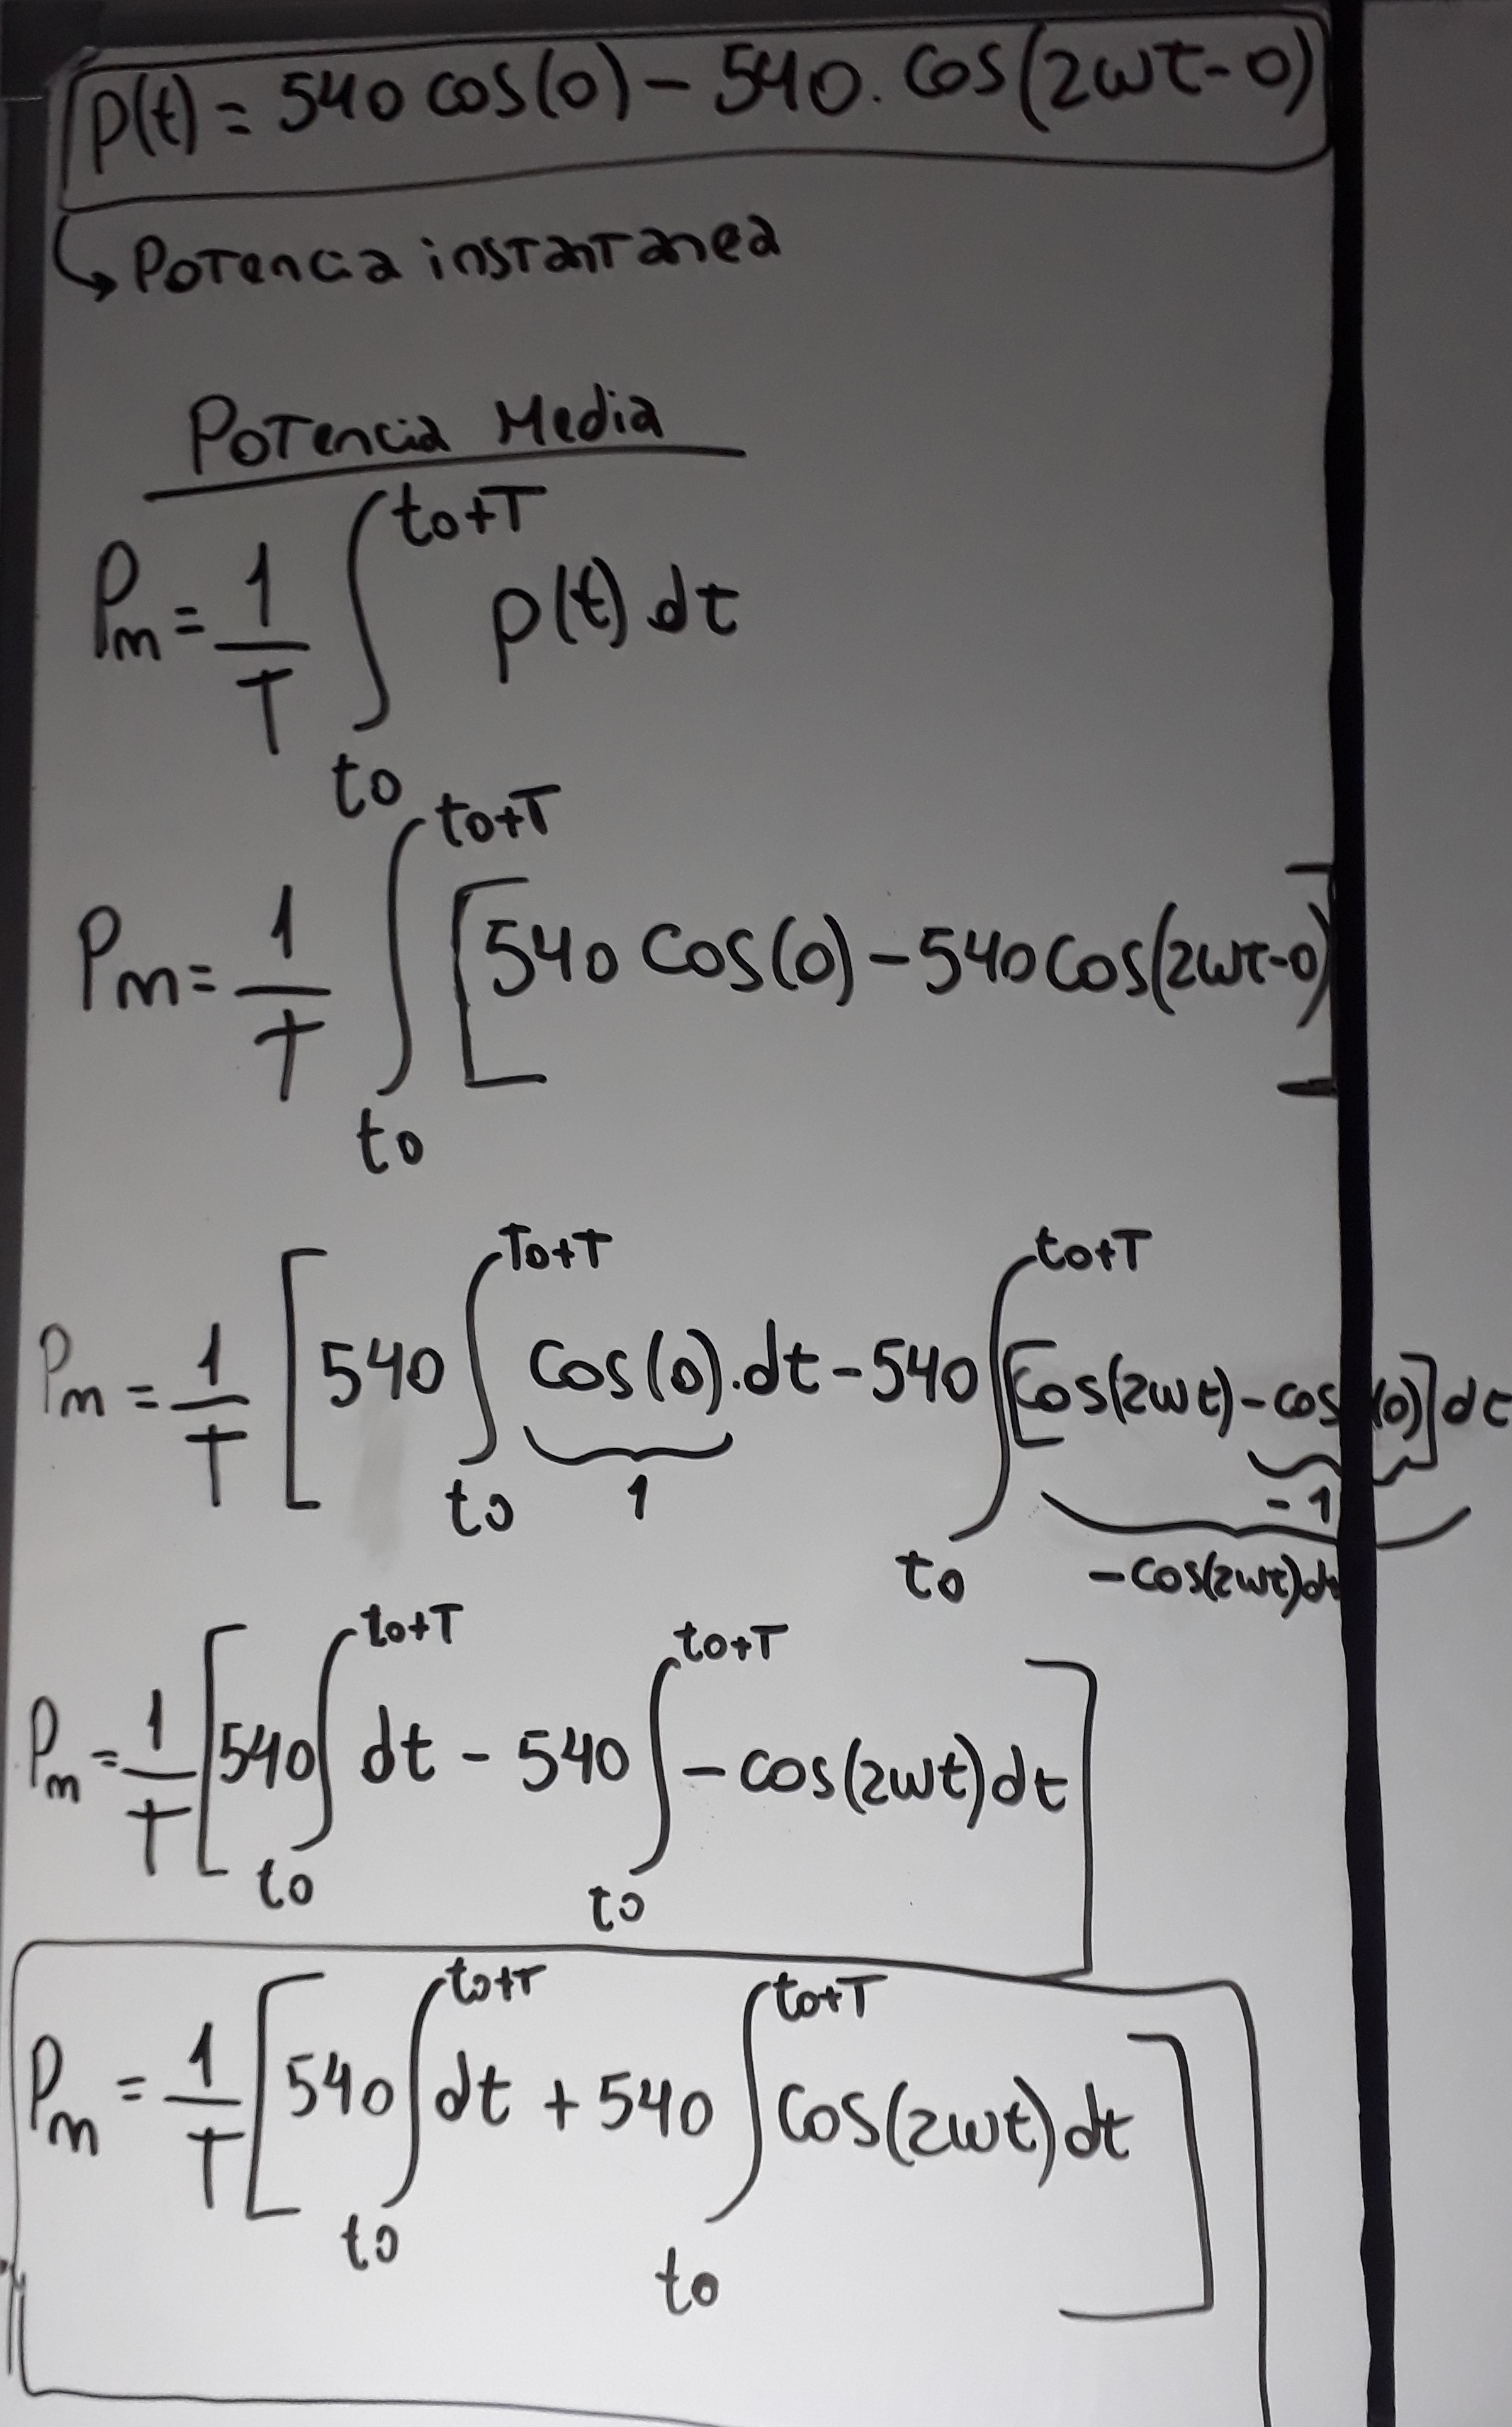 p(t) = 540 cos(0) - 540. cos(2wt-0)
Potencia instantanea
Potencia Media
Pm = 1/T ∫_{to}^{to+T} p(t) dt
Pm = 1/T ∫_{to}^{to+T} [540 cos(0) - 540 cos(2wt-0)]
Pm = 1/T [540 ∫_{to}^{To+T} cos(0).dt - 540 ∫_{to}^{to+T} [cos(2wt) - cos(0)] dt
1
-1
-cos(2wt)dt
Pm = 1/T [540 ∫_{to}^{to+T} dt - 540 ∫_{to}^{to+T} -cos(2wt)dt]
Pm = 1/T [540 ∫_{to}^{to+T} dt + 540 ∫_{to}^{to+T} cos(2wt)dt]